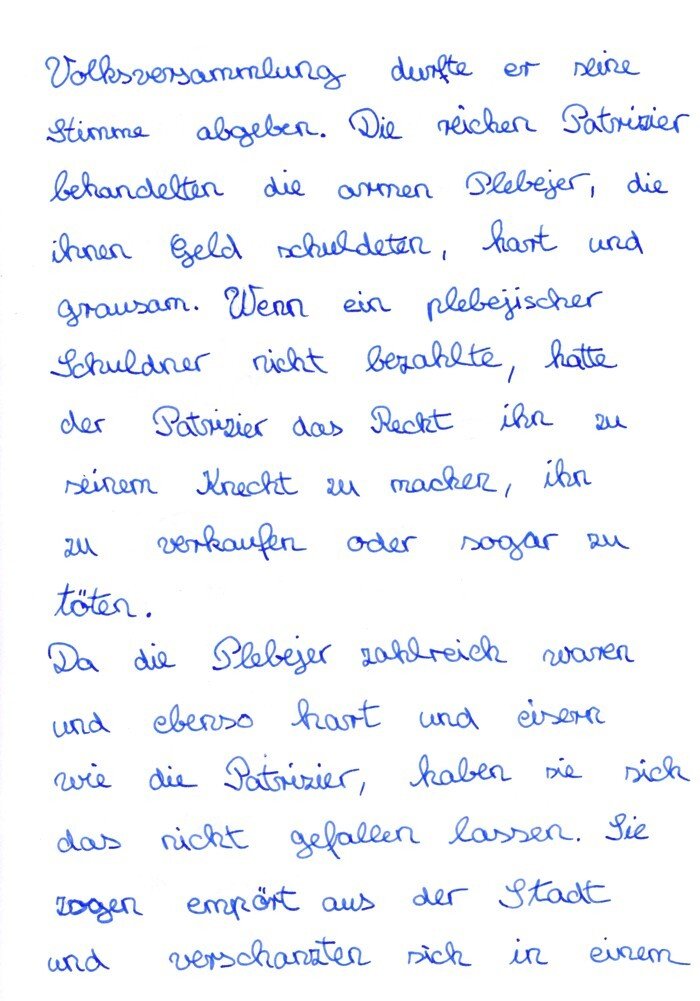 Volksversammlung durfte er seine
Stimme abgeben. Die reichen Patrizier
behandelten die armen Plebejer, die
ihnen Geld schuldeten, hart und
grausam. Wenn ein plebejischer
Schuldner nicht bezahlte, hatte
der Patrizier das Recht ihn zu
seinem Knecht zu machen, ihn
zu verkaufen oder sogar zu
töten.
Da die Plebejer zahlreich waren
und ebenso hart und eisern
wie die Patrizier, haben sie sich
das nicht gefallen lassen. Sie
zogen empört aus der Stadt
und verschanzten sich in einem